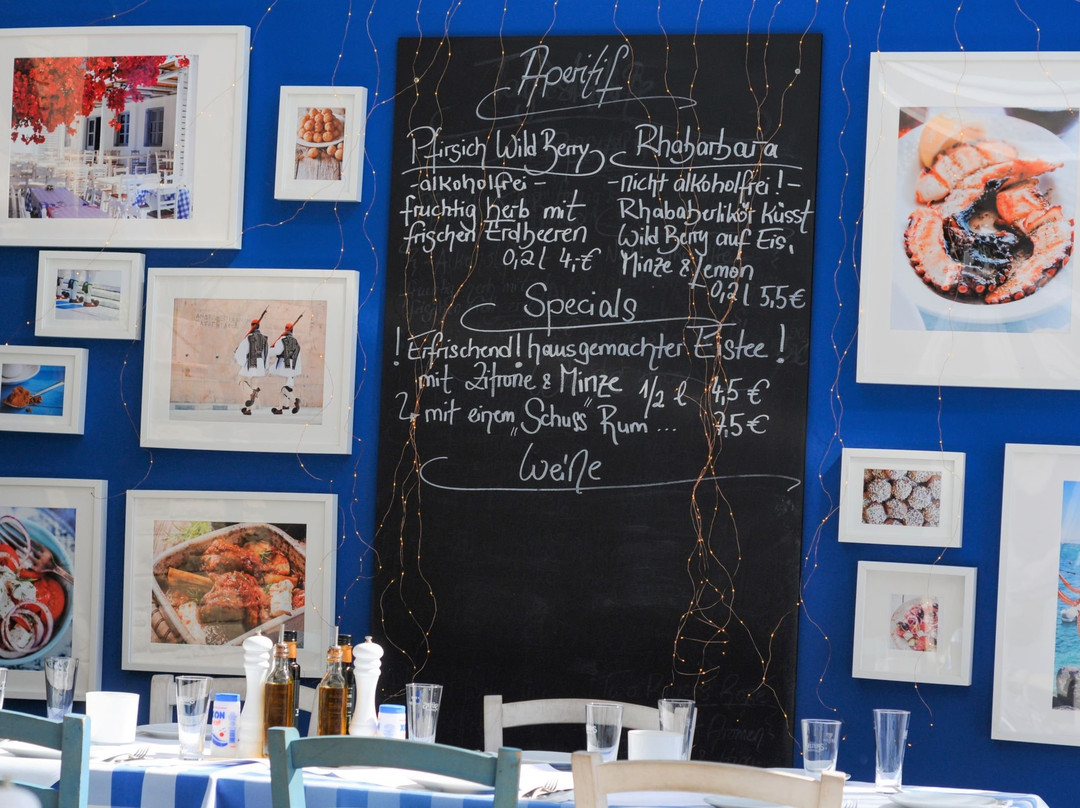 Aperitif
Pfirsich Wild Berry
-alkoholfrei-
fruchtig herb mit
frischen Erdbeeren
0,2l 4,-€
Rhabarbara
-nicht alkoholfrei!-
Rhababerlikör küsst
Wild Berry auf Eis,
Minze & Lemon
0,2l 5,5€
Specials
! Erfrischend! hausgemachter Eistee !
mit Zitrone & Minze 1/2 l 4,5 €
mit einem „Schuss" Rum... 7,5€
Weine